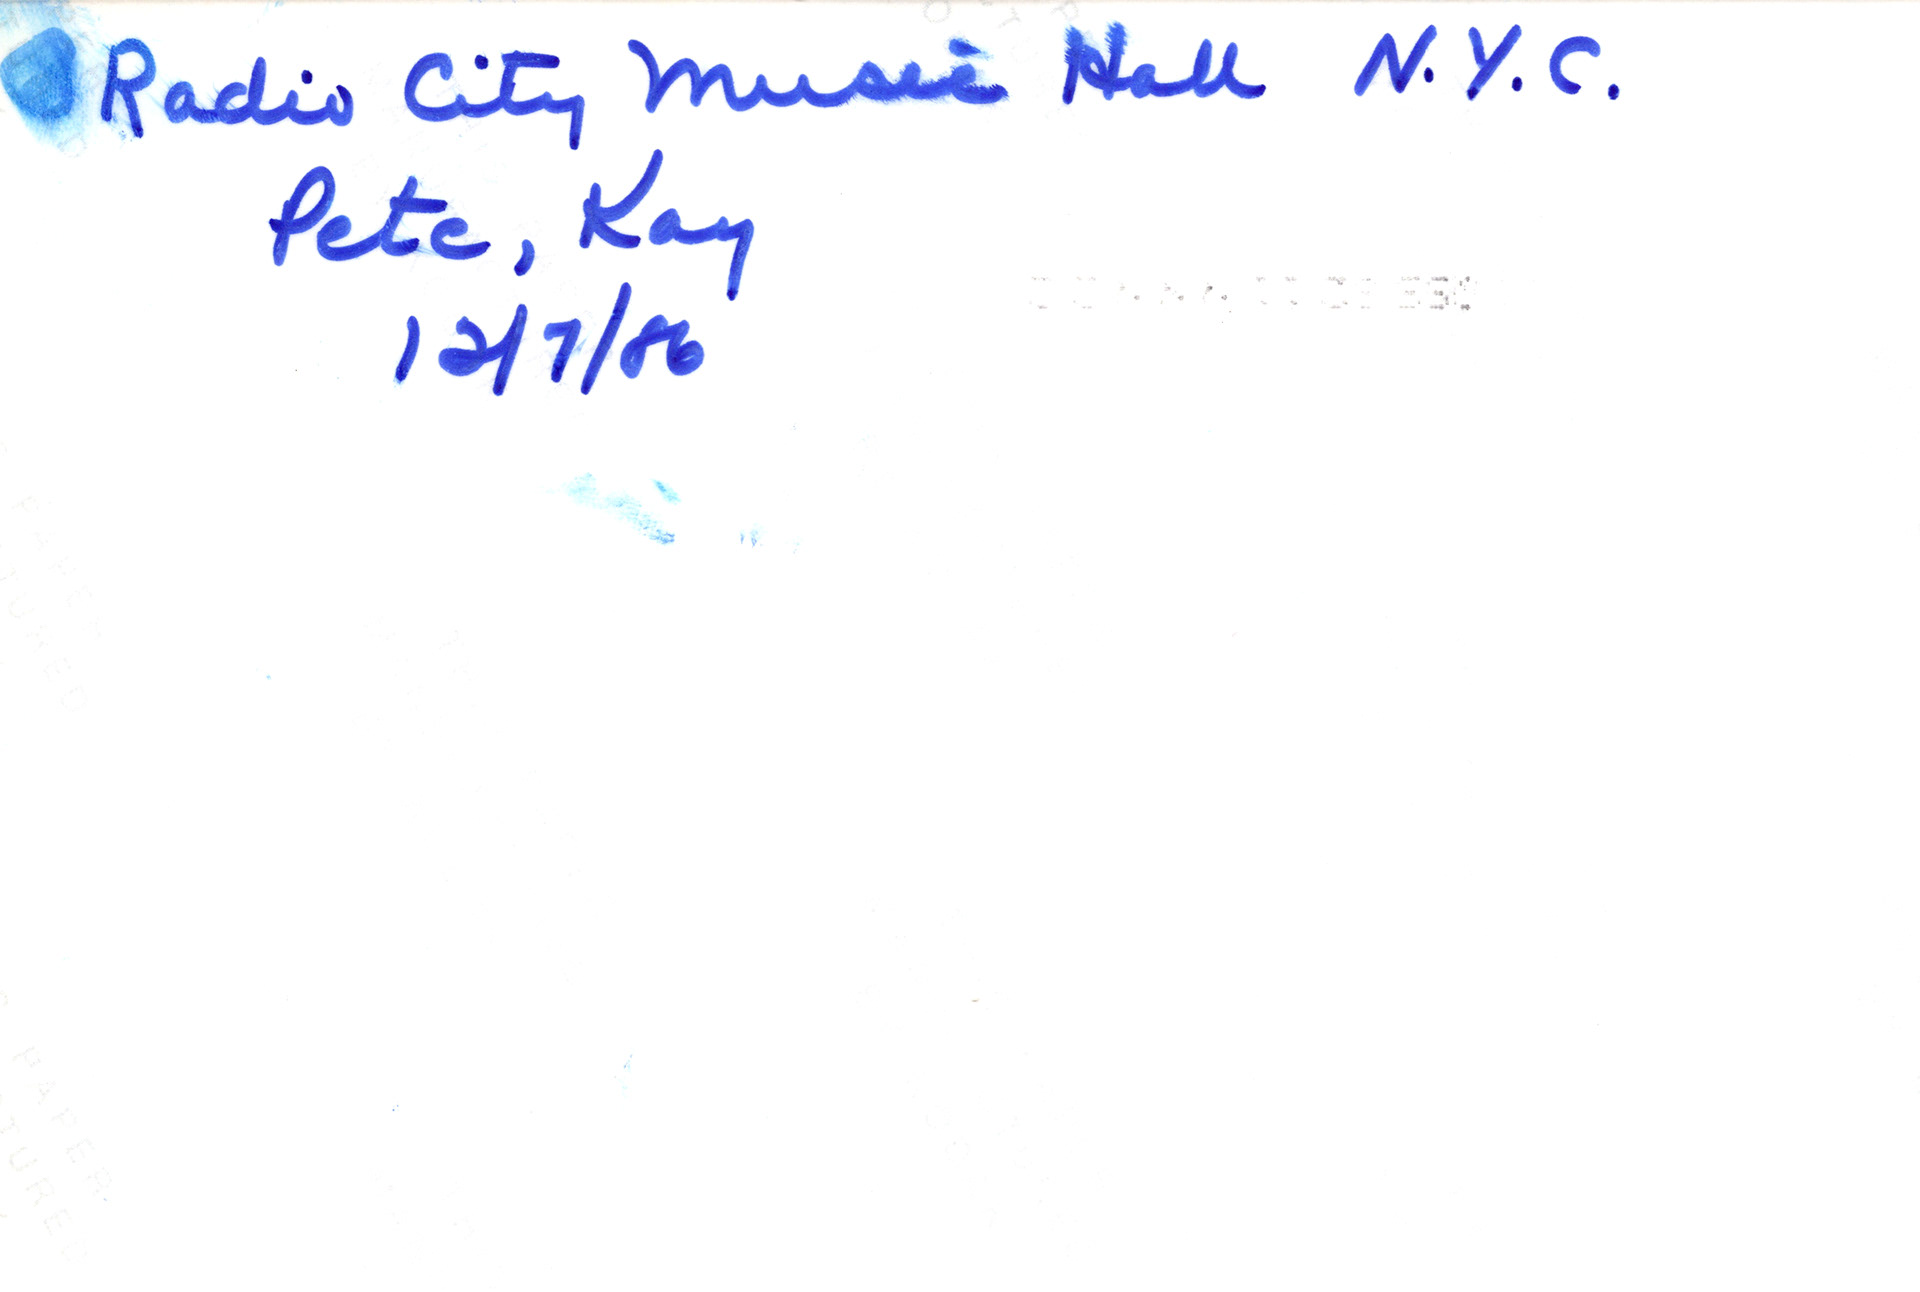 Radio City Music Hall N.Y.C.
Pete, Kay
12/7/86
PAPER
PAPER